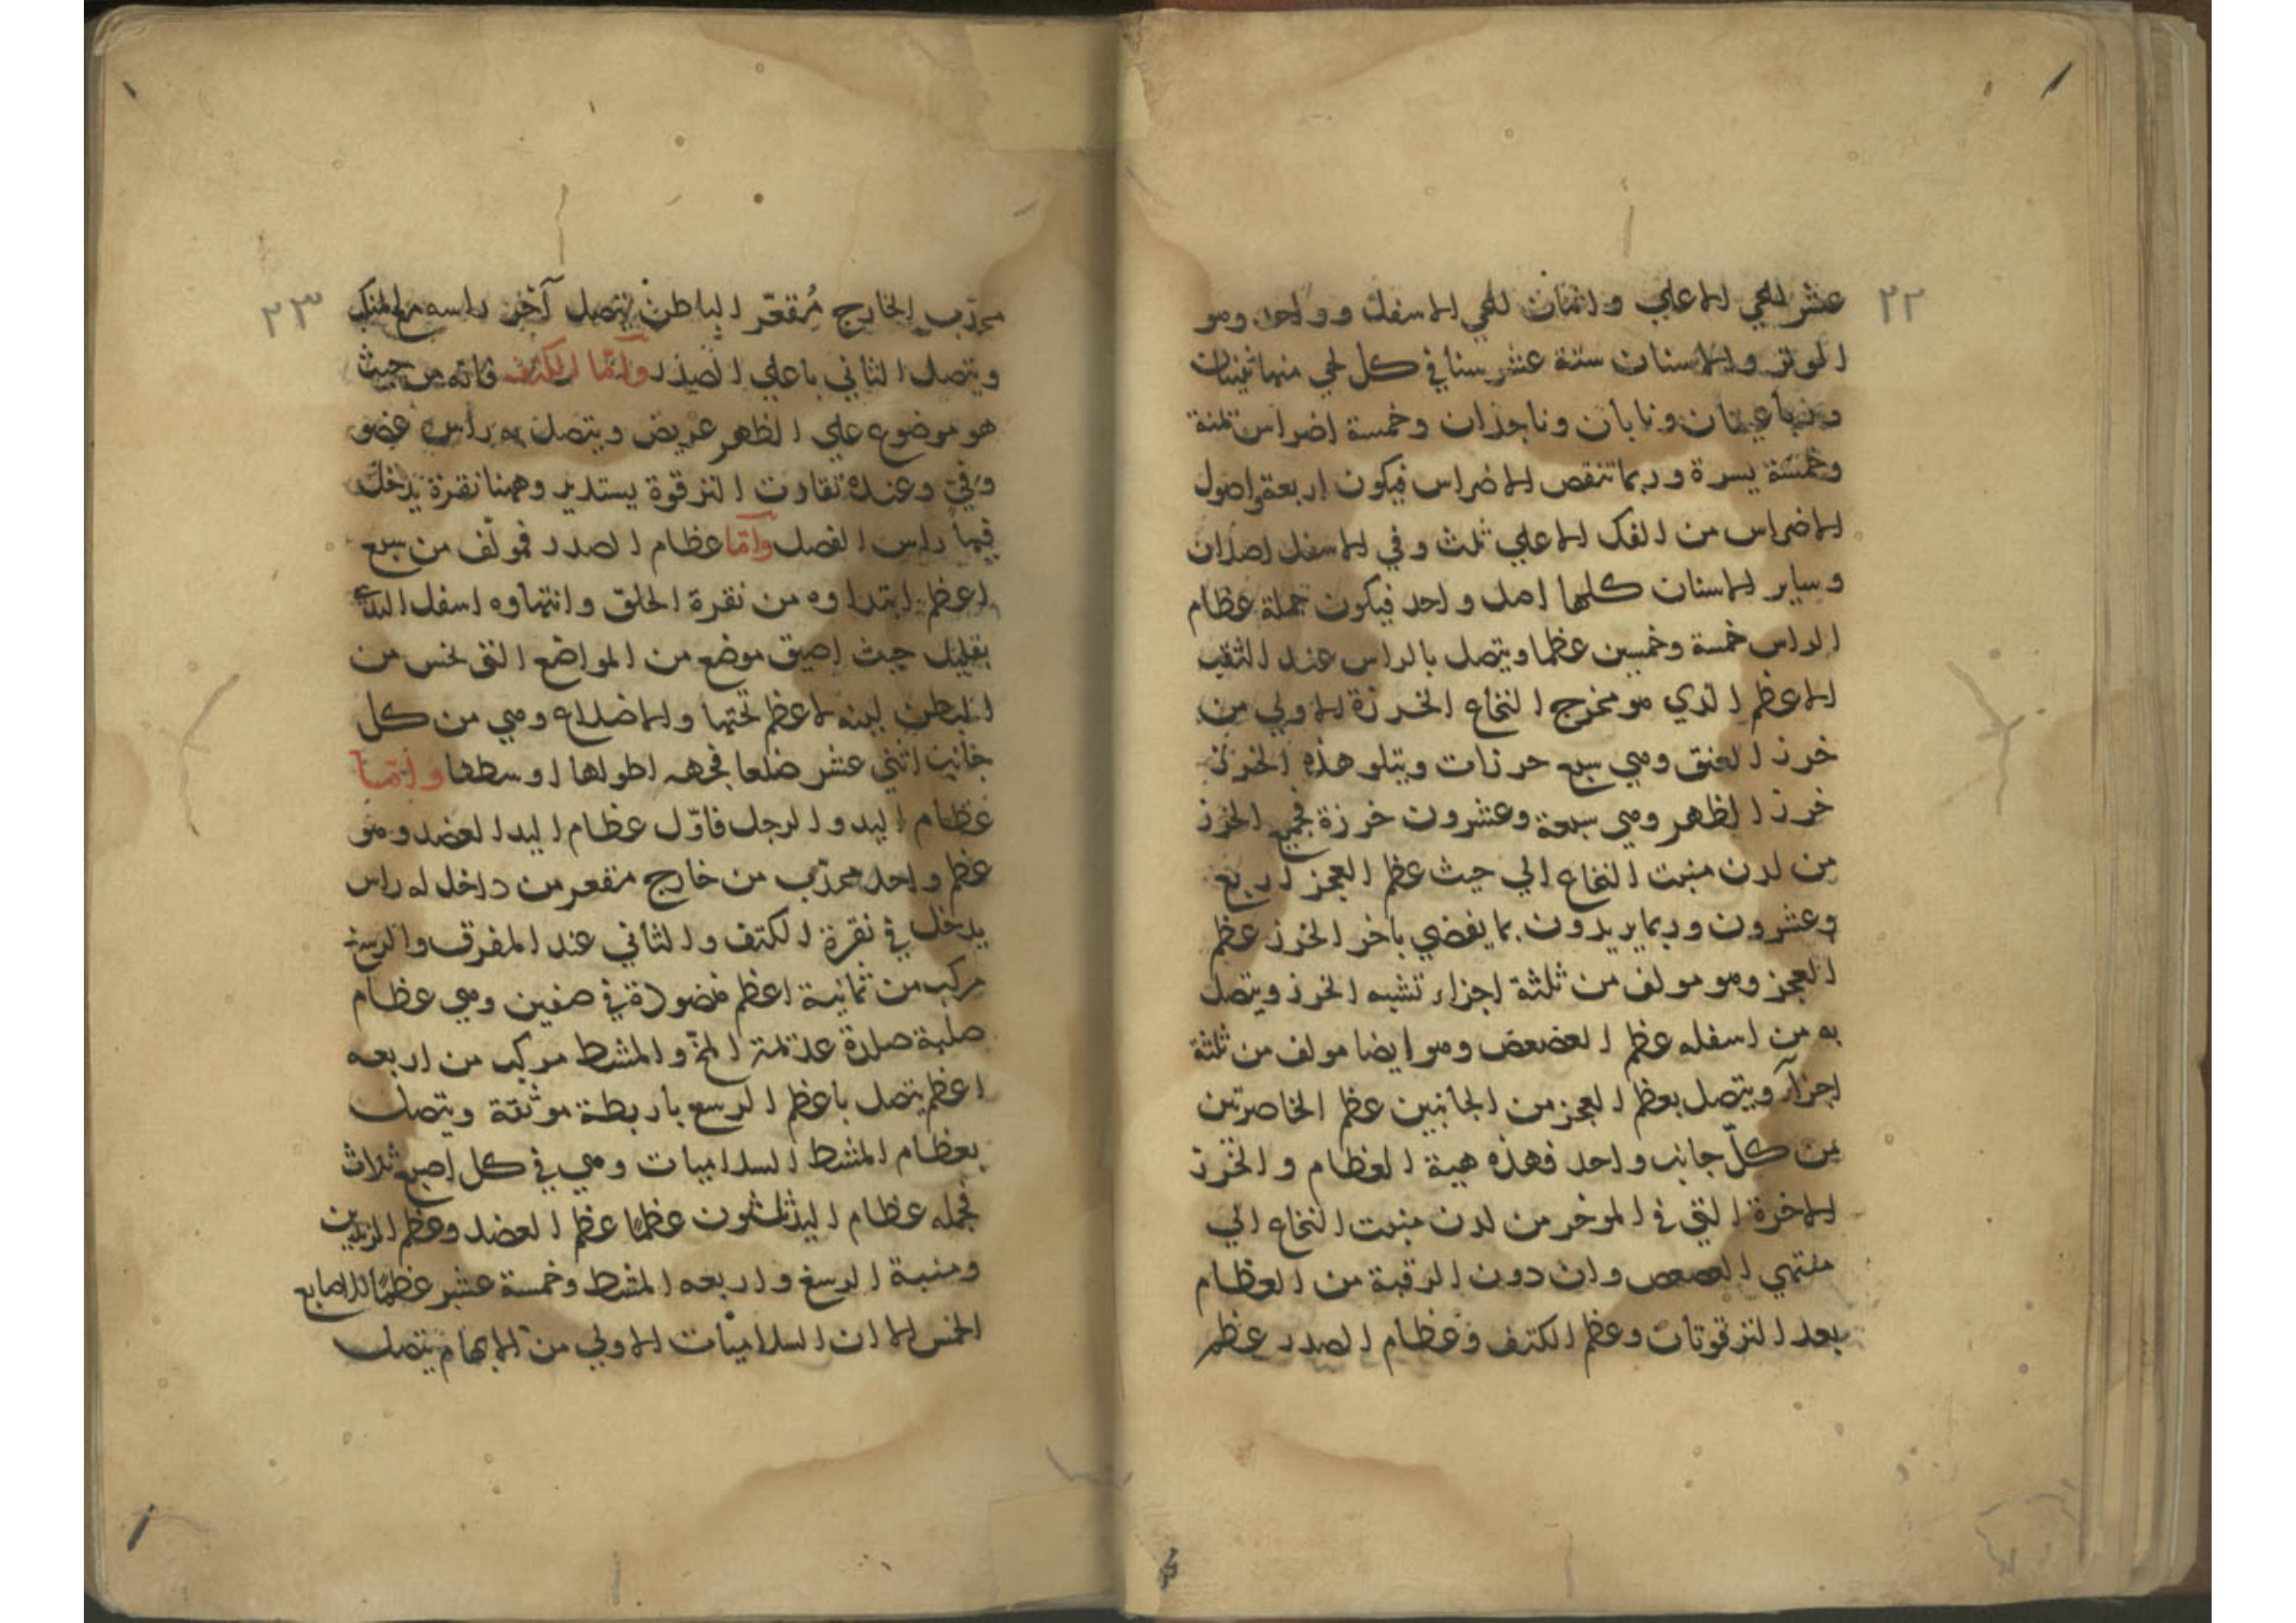 ٢٢
عشر للحي الاعلي واثنان للحي الاسفل وواحد وهو
الوتر والاسنان ستة عشر سنا في كل لحي منها ثنيتان
ورباعيتان ونابان وناجذان وخمسة اضراس يمنة
وخمسة يسرة وربما تنقص الاضراس فيكون اربعة واصول
الاضراس من الفك الاعلي ثلث وفي الاسفل اصلان
وساير الاسنان كلها اصل واحد فيكون جملة عظام
الراس خمسة وخمسين عظما ويتصل بالراس عند الثقب
الاعظم الذي هو مخرج النخاع الخرزة الاولي من
خرز العنق وهي سبع حرزات ويتلو هذه الخرز
خرز الظهر وهي سبعة وعشرون خرزة فجميع الخرز
من لدن منبت النخاع الي حيث عظم العجز اربع
وعشرون وربما يريدون بما يفضي باخر الخرز عظم
العجز وهو مولف من ثلثة اجزاء تشبه الخرز ويتصل
به من اسفله عظم العضعض وهو ايضا مولف من ثلثة
اجزآء ويتصل بعظم العجز من الجانبين عظم الخاصرتين
من كلّ جانب واحد فهذه هية العظام والخرز
الاخرة التي في الموخر من لدن منبت النخاع الي
منتهي العصعص وان دون الرقبة من العظام
بعد الترقوتان وعظم الكتف وعظام الصدر عظم
٢٣
محدّب الخارج مُقعّر الباطن يتصل آخر راسه مع المنكب
ويتصل الثاني باعلي الصدر وأمّا الكتف فانه من حيث
هو موضوع علي الظهر عريض ويتصل به راس عضو
وفي وعنده تقاوت الترقوة يستدير وههنا نقرة يدخل
فيها راس الفصل وأمّا عظام الصدر فمولّف من سبع
اعظم ابتداوه من نقرة الحلق وانتهاوه اسفل الثدي
بقليل حيث اضيق موضع من المواضع التي تحس من
البطن لينه لاعظم تحتها والاضلاع وهي من كل
جانب اثني عشر ضلعا فجهه اطولها اوسطها وامّا
عظام اليد والرجل فاوّل عظام اليد العضد وهو
عظم واحد محدّب من خارج مقعر من داخل له راس
يدخل في نقرة الكتف والثاني عند المفرق والرسغ
مركب من ثمانية اعظم منضودة في صفين وهي عظام
صلبة صلدة عديمة المخّ والمشط مركب من اربعه
اعظم يتصل باعظم الرسع باربطة موثقة ويتصل
بعظام المشط السلاميات وهي في كل اصبع ثلاث
فجمله عظام اليد ثلثون عظمًا عظم العضد وعظم الزندين
ومنبة الرسغ واربعه المشط وخمسة عشر عظمًا للاصابع
الخمس الا ان السلاميات الاولي من الابهام يتصل